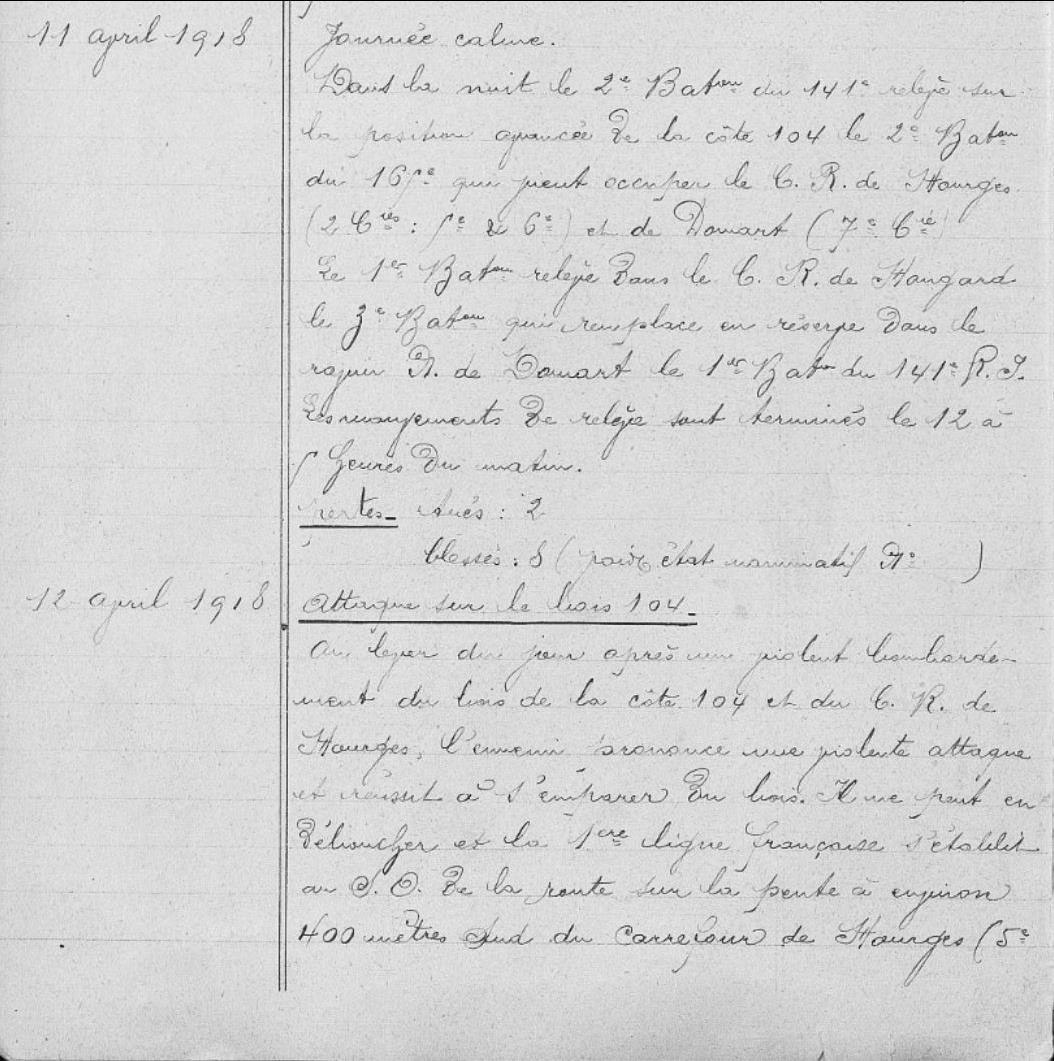 11 avril 1918
Journée calme.
Dans la nuit le 2e Baton du 141e relève sur
la position avancée de la côte 104 le 2e Baton
du 165e qui vient occuper le C. R. de Hourges
(2 Cies : 5e & 6e) et de Domart (7e Cie)
Le 1er Baton relève dans le C. R. de Hangard
le 3e Baton qui remplace en réserve dans le
ravin N. de Domart le 1er Baton du 141e R. I.
Les mouvements de relève sont terminés le 12 à
5 heures du matin.
pertes - tués : 2
blessés : 8 (voir état nominatif No )
12 avril 1918
Attaque sur le bois 104 -
Au lever du jour après un violent bombarde-
ment du bois de la côte 104 et du C. R. de
Hourges, l'ennemi prononce une violente attaque
et réussit à s'emparer du bois. Il ne peut en
déboucher et la 1ère ligne française s'établit
au S. O. de la route sur la pente à environ
400 mètres Sud du carrefour de Hourges (5e